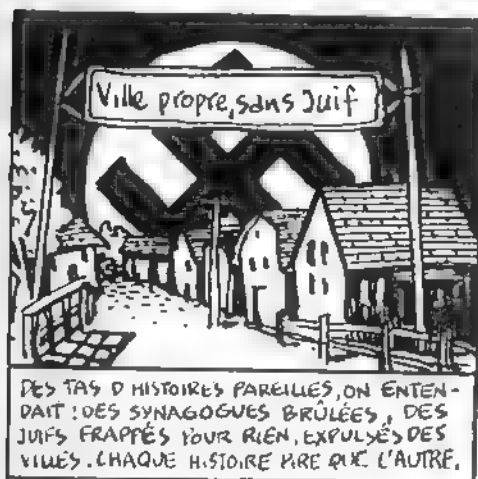 Ville propre, sans Juif
DES TAS D'HISTOIRES PAREILLES, ON ENTEN-
DAIT : DES SYNAGOGUES BRÛLÉES, DES
JUIFS FRAPPÉS POUR RIEN, EXPULSÉS DES
VILLES. CHAQUE HISTOIRE PIRE QUE L'AUTRE.